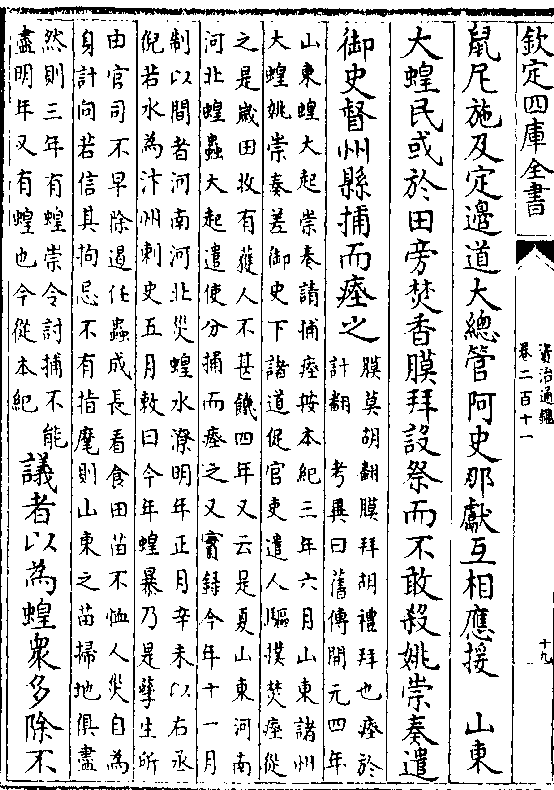 欽定四庫全書
資治通鑑
卷二百十一
十九
鼠尼施及定邊道大總管阿史那獻互相應援　山東
大蝗民或於田旁焚香膜拜設祭而不敢殺姚崇奏遣
御史督州縣捕而瘞之
膜莫胡翻膜拜胡禮拜也瘞於
計翻　考異曰舊傳開元四年
山東蝗大起崇奏請捕瘞按本紀三年六月山東諸州
大蝗姚崇奏差御史下諸道促官吏遣人驅撲焚瘞從
之是歲田收有獲人不甚饑四年又云是夏山東河南
河北蝗蟲大起遣使分捕而瘞之又實録今年十一月
制以間者河南河北災蝗水潦明年正月辛未以右丞
倪若水為汴州刺史五月敕曰今年蝗暴乃是孳生所
由官司不早除遏任蟲成長看食田苗不恤人災自為
身計向若信其拘忌不有指麾則山東之苗掃地俱盡
然則三年有蝗崇令討捕不能
盡明年又有蝗也今從本紀
議者以為蝗衆多除不